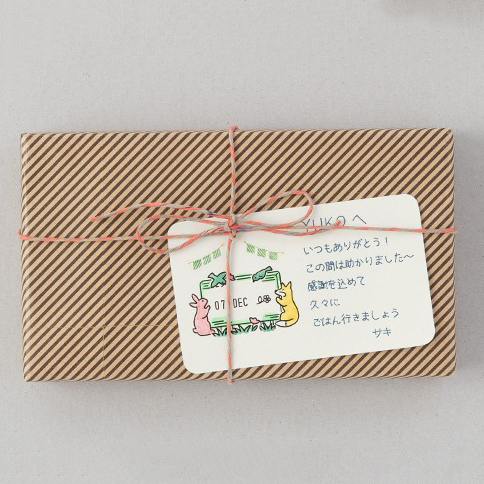 YUKOへ
いつもありがとう!
この間は助かりました〜
感謝を込めて
久々に
ごはん行きましょう
サキ
07 DEC